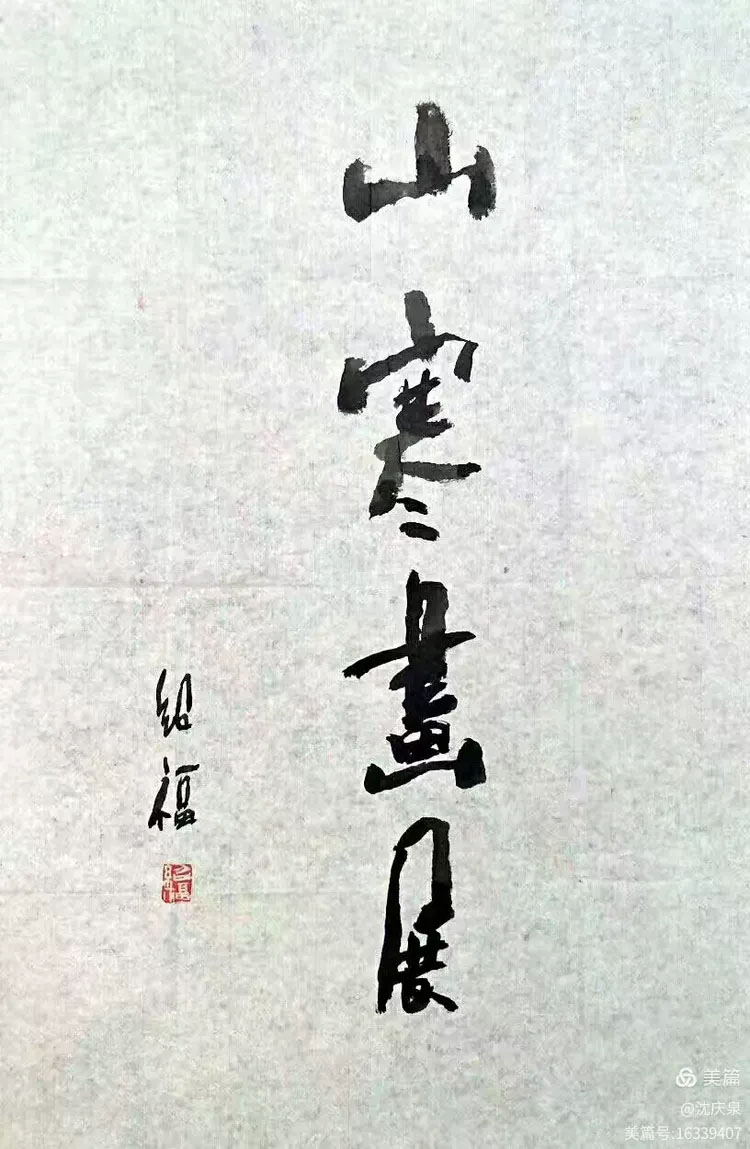 山寒畫展
绍福
美篇
@沈庆泉
美篇号:16339407